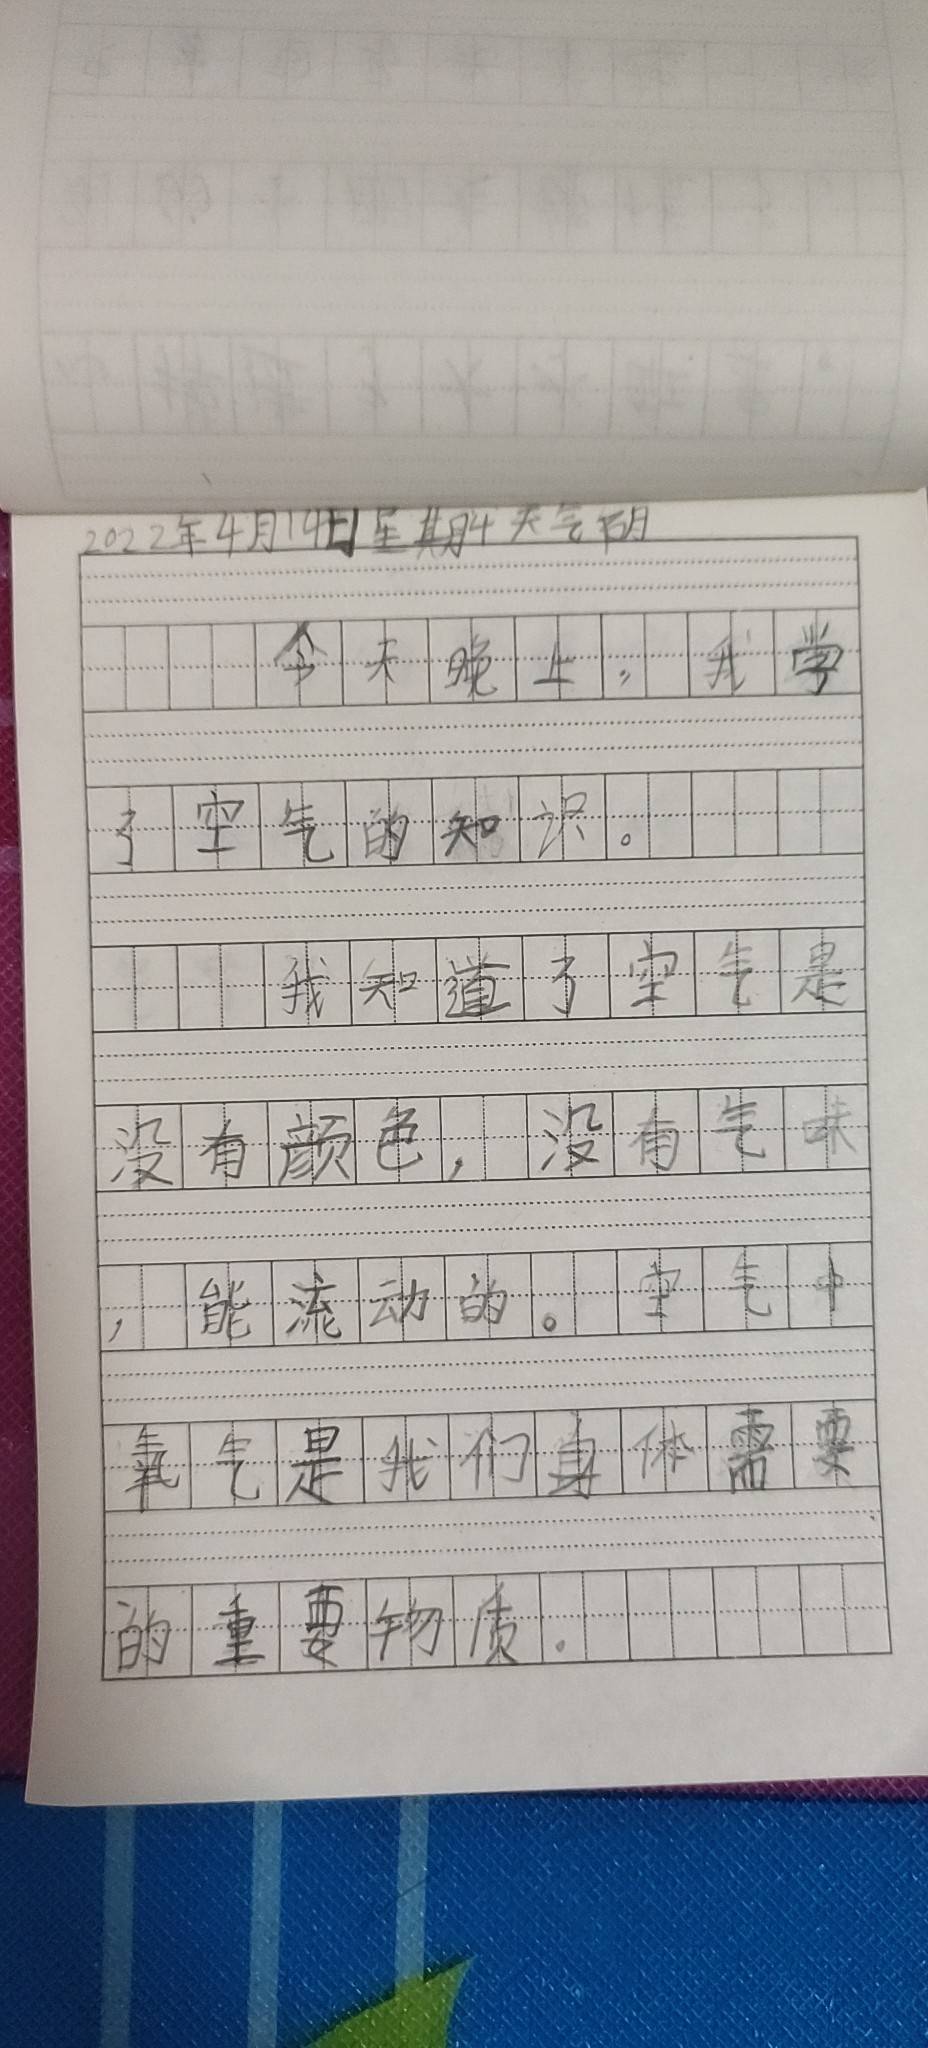 2022年4月14日星期4 天气阴
今天晚上，我学
了空气的知识。
我知道了空气是
没有颜色，没有气味
，能流动的。空气中
氧气是我们身体需要
的重要物质.